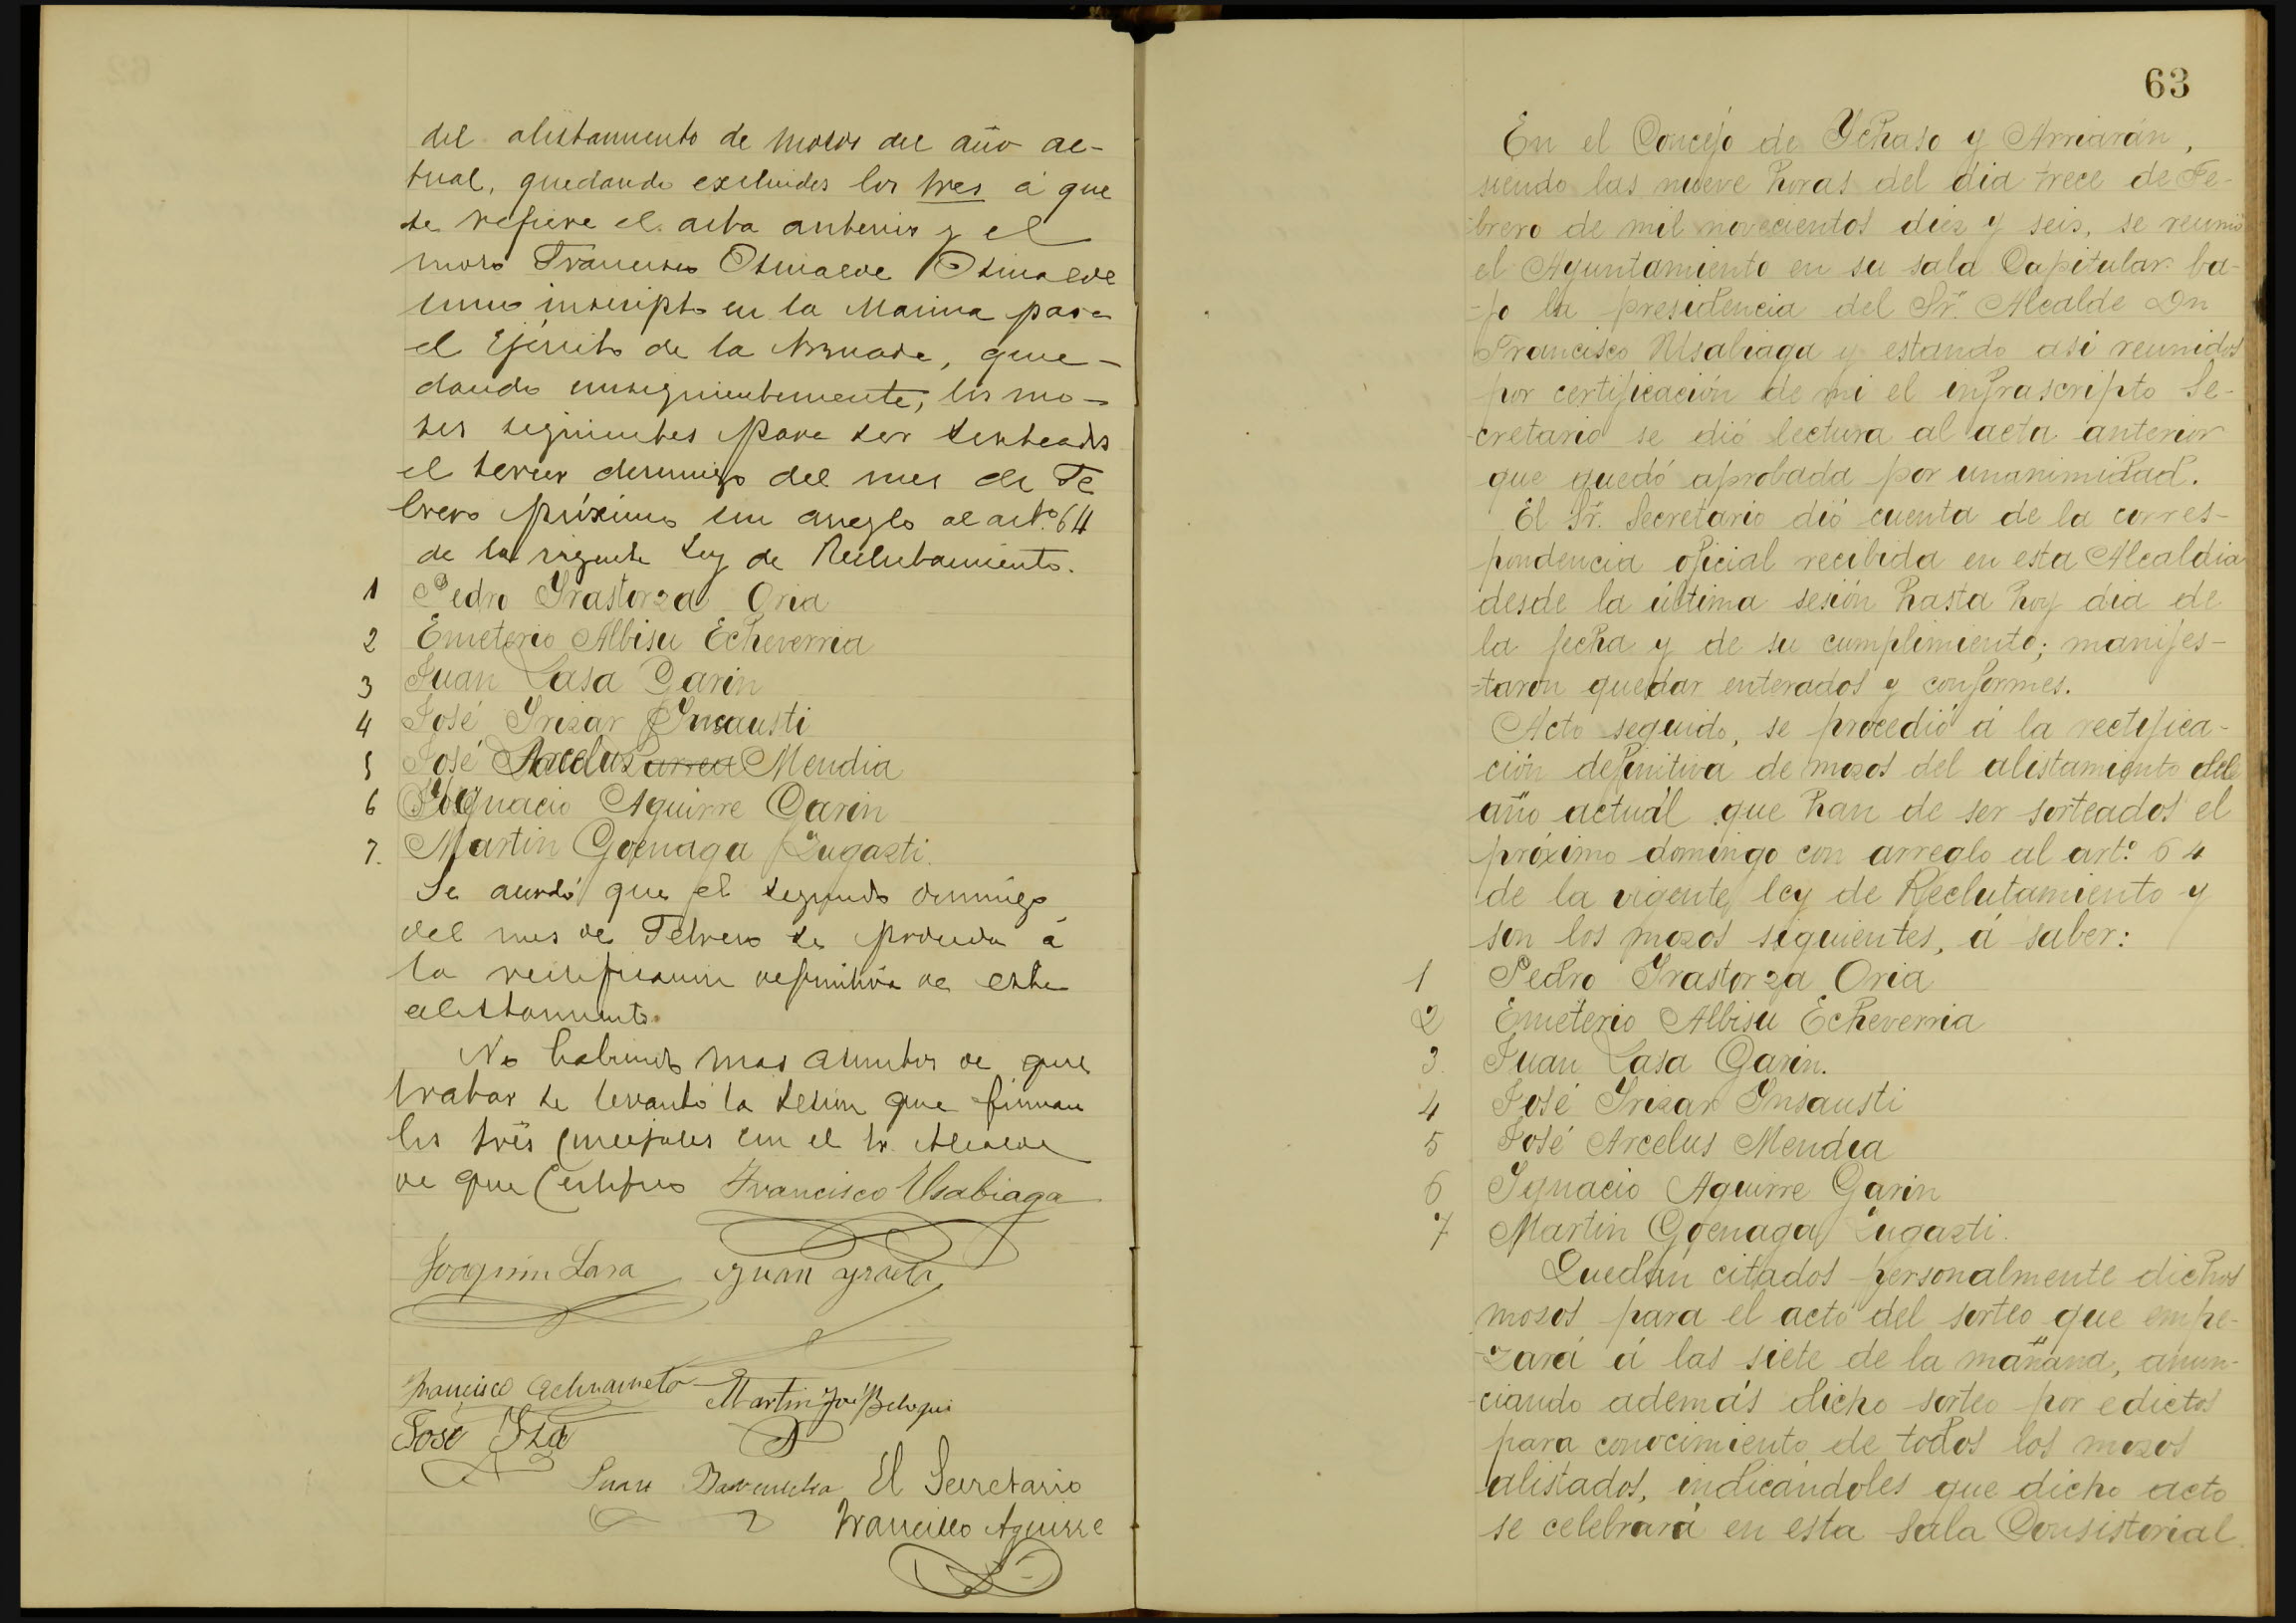 del alistamiento de mozos del año ac-
tual, quedando excluidos los tres á que
se refiere el acta anterior y el
mozo Francisco Otinalde Otinalde
como inscripto en la Marina para
el Ejército de la Armada, que-
dando consiguientemente, los mo-
zos siguientes para ser sorteados
el tercer domingo del mes de Fe
brero próximo con arreglo al artº. 64
de la vigente Ley de Reclutamiento.
1 Pedro Yrastorza Oria
2 Emeterio Albisu Echeverria
3 Juan Lasa Garin
4 José Yrizar Ynsausti
5 José Arcelus Larrea Mendia
6 Ygnacio Aguirre Garin
7. Martin Goenaga Zugasti.
Se acordó que el segundo domingo
del mes de Febrero se proceda á
la rectificacion definitiva de este
alistamiento.
No habiendo mas asuntos de que
tratar se levantó la sesion que firman
los tres Concejales con el Sr. Alcalde
de que Certifico Francisco Usabiaga
Joaquin Lasa Juan
Francisco Martin José Beloqui
José Yza
Juan El Secretario
Francisco Aguirre
63
En el Concejo de Ychaso y Arriarán,
siendo las nueve horas del dia trece de Fe-
-brero de mil novecientos diez y seis, se reunió
el Ayuntamiento en su sala Capitular ba-
-jo la presidencia del Sr. Alcalde Dn
Francisco Usabiaga y estando asi reunidos
por certificación de mi el infrascripto Se-
-cretario se dió lectura al acta anterior
que quedó aprobada por unanimidad.
El Sr. Secretario dió cuenta de la corres-
pondencia oficial recibida en esta Alcaldia
desde la última sesión hasta hoy dia de
la fecha y de su cumplimiento; manifes-
-taron quedar enterados y conformes.
Acto seguido, se procedió á la rectifica-
ción definitiva de mozos del alistamiento del
año actuál que han de ser sorteados el
próximo domingo con arreglo al artº. 64
de la vigente ley de Reclutamiento y
son los mozos siguientes, á saber:
1 Pedro Yrastorza Oria
2 Emeterio Albisu Echeverria
3. Juan Lasa Garin.
4 José Yrizar Ynsausti
5 José Arcelus Mendia
6 Ygnacio Aguirre Garin
7 Martin Goenaga Zugasti.
Quedan citados personalmente dichos
mozos para el acto del sorteo que empe-
-zará á las siete de la mañana, anun-
-ciando además dicho sorteo por edictos
para conocimiento de todos los mozos
alistados, indicándoles que dicho acto
se celebrará en esta Sala Consistorial.